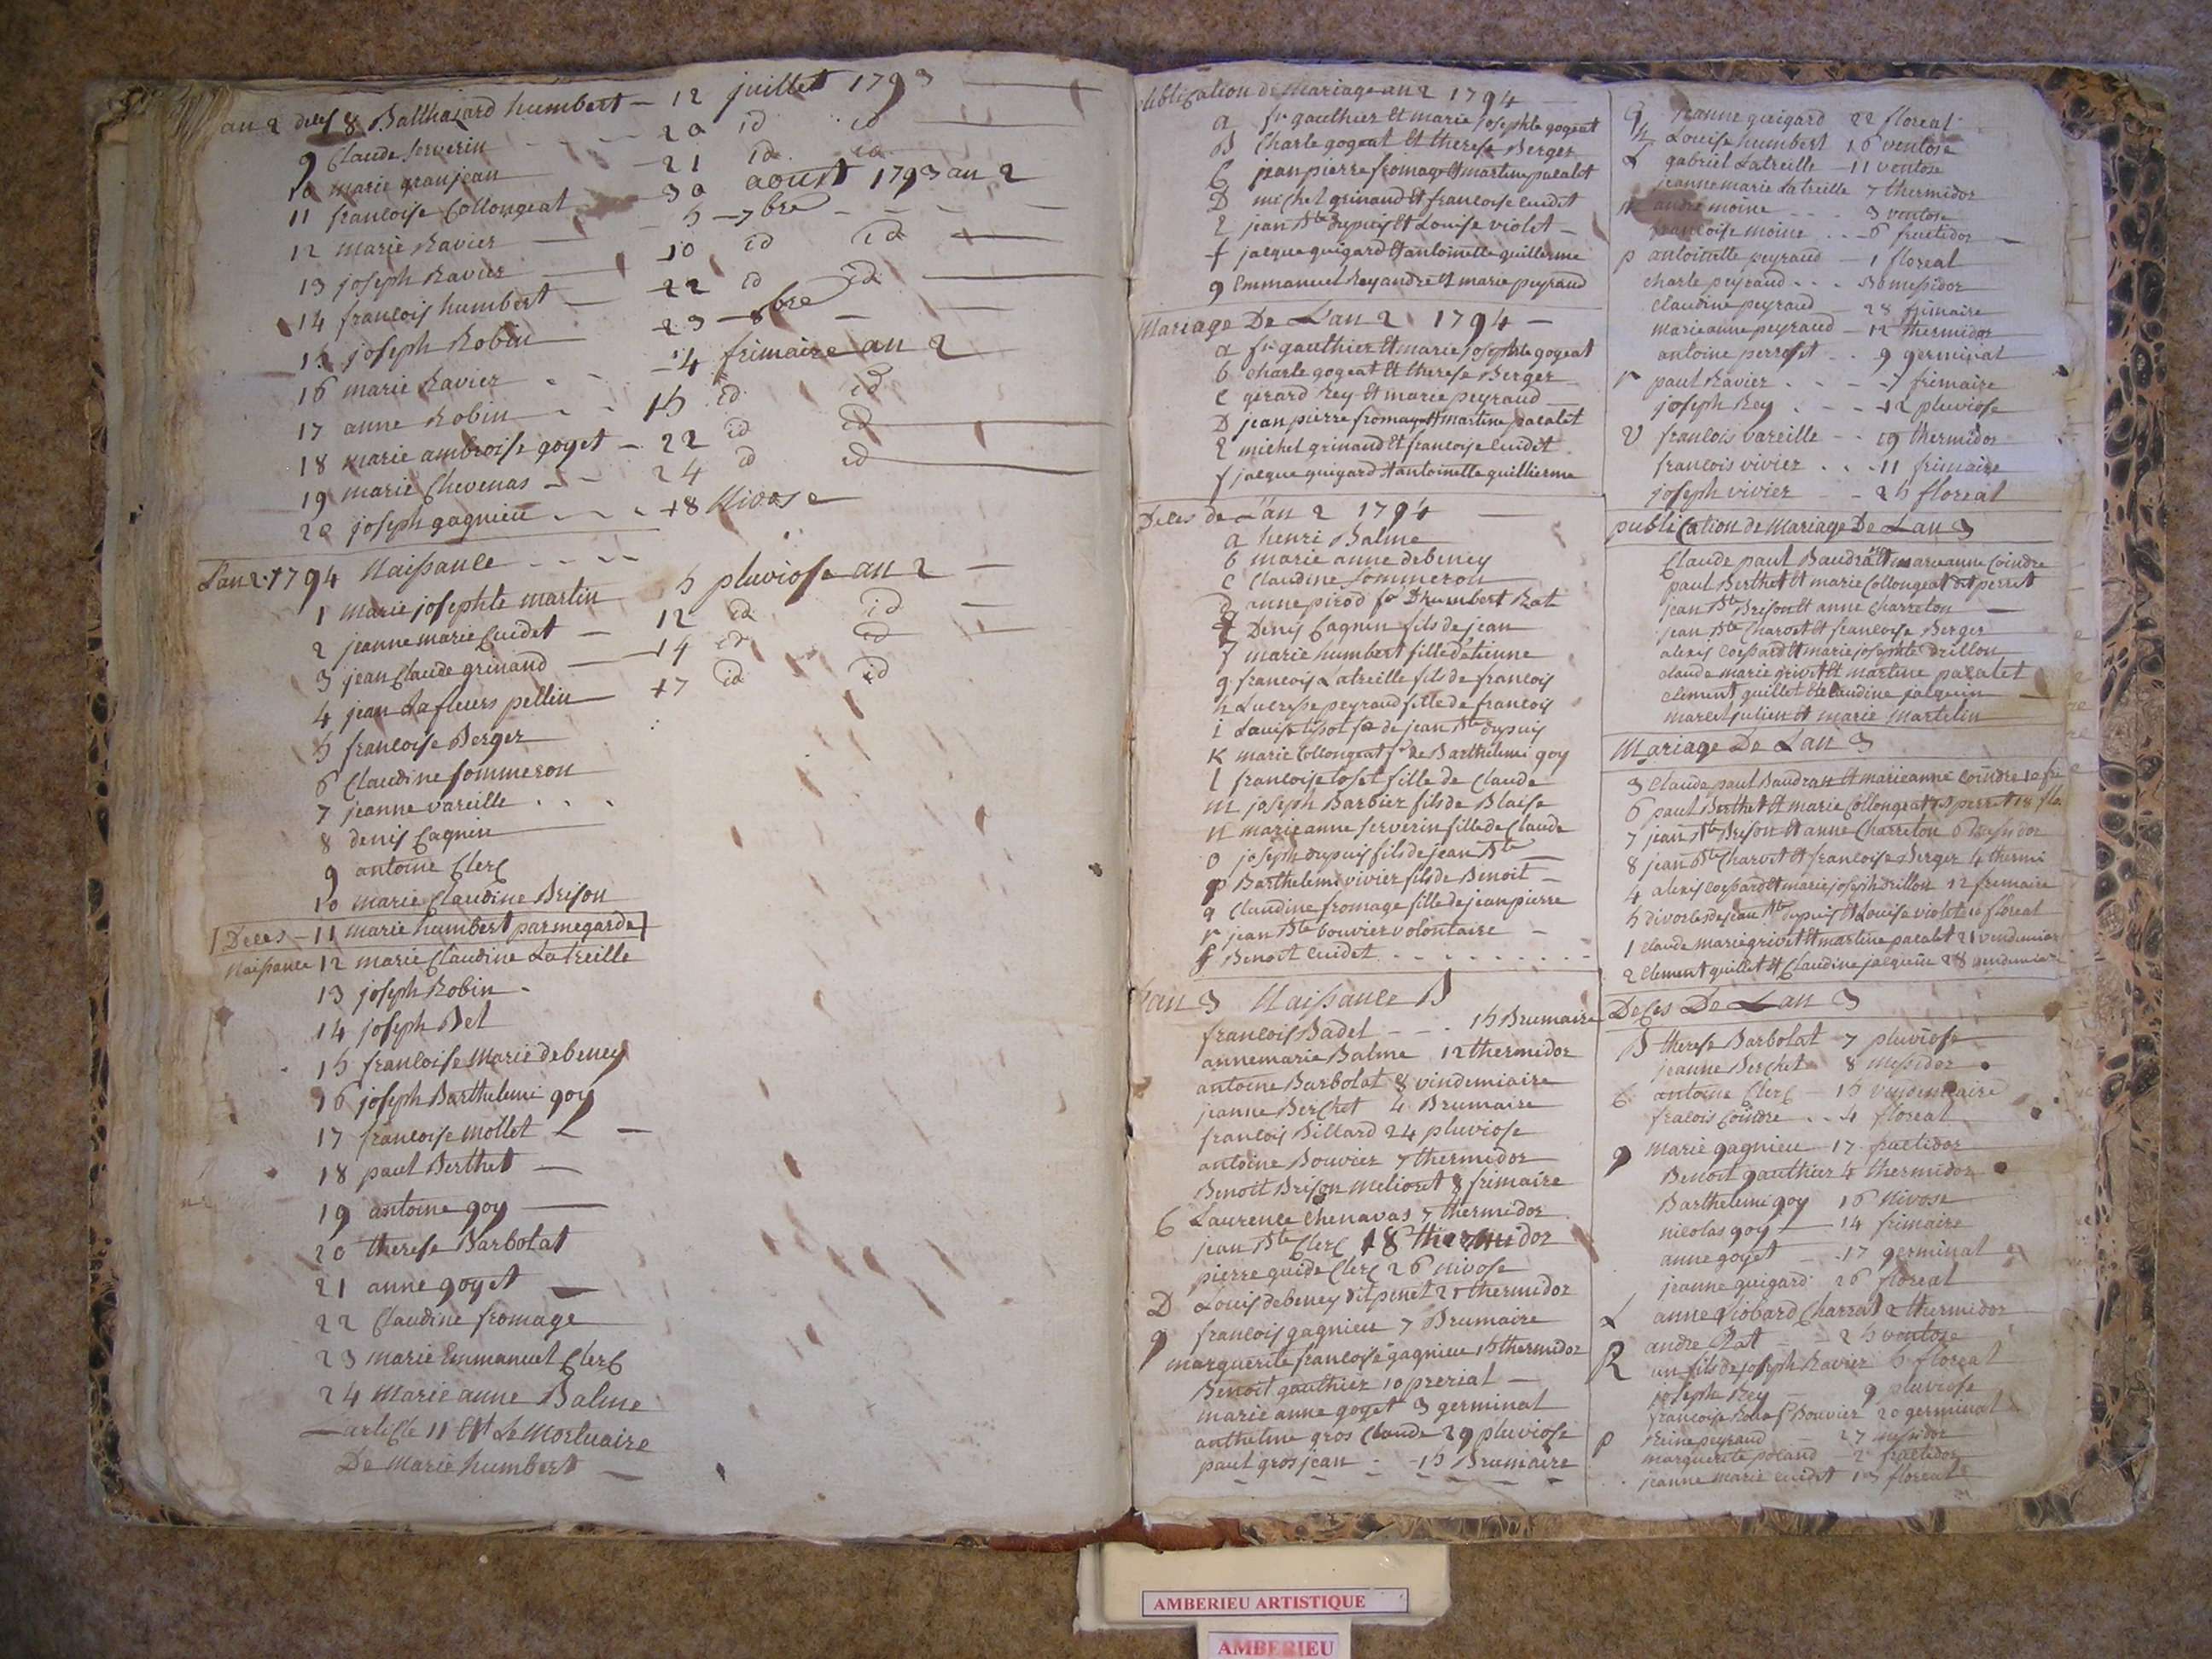 an 2 deces 8 Balthazard humbert - 12 juillet 1793
9 Claude serverin - 20 id id
10 marie granjean - 21 id id
11 francoise Collongeat - 30 aoust 1793 an 2
12 marie Ravier - 5 - 7bre
13 joseph Ravier 10 id id
14 francois humbert - 22 id id
15 joseph Robin 23 - 8bre
16 marie Ravier - 4 frimaire an 2
17 anne Robin - 15 id id
18 marie ambroise goyet - 22 id id
19 marie Chevenas - 24 id id
20 joseph gagnieu - 18 Nivose
L'an 2 1794 Naissance
1 marie josephte martin 5 pluviose an 2
2 jeanne marie Cuidet - 12 id id
3 jean Claude grinand - 14 id id
4 jean Lafleurs pellin 17 id id
5 francoise Berger
6 Claudine sommeron
7 jeanne vareille
8 denis Cagnin
9 antoine Clerc
10 marie Claudine Brison
Deces - 11 marie humbert par megarde
Naissance 12 marie Claudine Latreille
13 joseph Robin
14 joseph Bel
15 francoise Marie debeney
16 joseph Barthelemi goy
17 francoise mollet
18 paul Berthet
19 antoine goy
20 therese Barbolat
21 anne goyet
22 Claudine fromage
23 marie Emmanuel Clerc
24 Marie anne Balme
L'article 11 Est Le Mortuaire
De Marie humbert
publication de Mariage an 2 1794
a fr gauthier Et marie josephte gogeat
B Charle gogeat Et therese Berger
C jean pierre fromage Et martine pacalet
D michel grinand Et francoise Cuidet
E jean Bte dupuis Et Louise violet
f jacque guigard Et antoinette guillerme
g Emmanuel Rey andre Et marie peyraud
Mariage De L'an 2 1794
a fr gauthier Et marie josephte gogeat
b charle gogeat Et therese Berger
C gerard Rey Et marie peyraud
D jean pierre fromage Et martine pacalet
E michel grinand Et francoise Cuidet
f jacque guigard Et antoinette guillierme
Deces de L'an 2 1794
a henri Balme
b marie anne debeney
c Claudine sommeron
d anne pirod fe D'humbert Rat
Denis Cagnin fils de jean
f marie humbert fille d'etienne
g francois Latreille fils de francois
h Lucresse peyraud fille de francois
i Louise tissot fe de jean Bte dupuis
K marie Collongeat fe de Barthelemi goy
l francoise loset fille de Claude
m joseph Barbier fils de Blaise
n marie anne serverin fille de Claude
o joseph dupuis fils de jean Bte
p Barthelemi vivier fils de Benoit
q Claudine fromage fille de jean pierre
r jean Bte bouvier volontaire
f Benoit Cuidet
L'an 3 Naissance B
francois Badel - 15 Brumaire
anne marie Balme 12 thermidor
antoine Barbolat 8 vindemiaire
jeanne Berchet 4 Brumaire
francois Billard 24 pluviose
antoine Bouvier 7 thermidor
Benoit Brison Melioret 8 frimaire
C Laurence Chenavas 7 thermidor
jean Bte Clerc 18 thermidor
pierre guide Clerc 26 nivose
D Louis debeney dit penet 25 thermidor
g francois gagnieu 7 Brumaire
marguerite francoise gagnieu 15 thermidor
Benoit gauthier 10 prerial
marie anne goyet 3 germinal
anthelme gros Claude 29 pluviose
paul gros jean - 15 Brumaire
G jeanne guigard 22 floreal
h Louise humbert 16 ventose
L gabriel Latreille - 11 ventose
jeanne marie Latreille 7 thermidor
M andre moine 3 ventose
francoise moine - 6 fructidor
p antoinette peyraud - 1 floreal
charle peyraud 30 messidor
claudine peyraud 28 frimaire
marie anne peyraud - 12 thermidor
antoine perroset - 9 germinal
r paul Ravier - 7 frimaire
joseph Rey - 12 pluviose
V francois vareille - 19 thermidor
francois vivier - 11 frimaire
joseph vivier - 25 floreal
publication de Mariage De Lan 3
Claude paul Baudran Et marie anne Coindre
paul Berthet Et marie Collongeat dit perret
jean Bte Brison Et anne Charreton
jean Bte Charvet Et francoise Berger
alexis Cossard Et marie josephte Drillon
claude marie grivet Et martine pacalet
Clement guillet Et Claudine jacquin
marcet julien Et marie Martelin
Mariage De Lan 3
3 Claude paul Baudran Et marie anne Coindre 10 fri
6 paul Berthet Et marie Collongeat dit perret 18 flo
7 jean Bte Brison Et anne Charreton 6 Messidor
8 jean Bte Charvet Et francoise Berger 4 thermi
4 alexis Cossard Et marie joseph drillon 12 frimaire
5 divorce de jean Bte dupuis Et Louise violet 10 floreal
1 Claude marie grivet Et martine pacalet 21 vendemiair
2 Clement guillet Et Claudine jacquin 28 vendemiair
Deces De Lan 3
B therese Barbolat 7 pluviose
jeanne Berchet 8 messidor
C antoine Clerc - 15 vendemiaire
fracois Coindre - 4 floreal
g marie gagnieu 17 fructidor
Benoit gauthier 4 thermidor
Barthelemi goy 16 Nivose
nicolas goy - 14 frimaire
anne goyet - 17 germinal
jeanne guigard 26 floreal
L anne Liobard Charrat 2 thermidor
andre Rat - 25 ventose
R un fils de joseph Ravier 5 floreal
joseph Rey - 9 pluviose
francoise Bouvier 20 germinal
p Reine peyraud - 27 messidor
marguerite poland - 2 fructidor
jeanne marie cuidet 13 floreal
AMBERIEU ARTISTIQUE
AMBERIEU